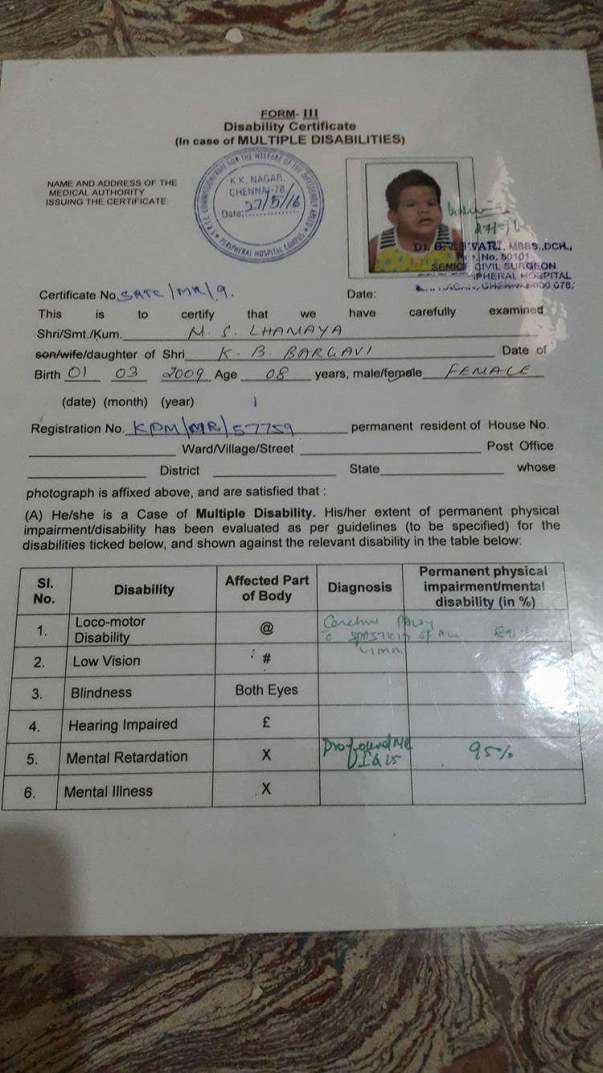 FORM- III
Disability Certificate
(In case of MULTIPLE DISABILITIES)
NAME AND ADDRESS OF THE
MEDICAL AUTHORITY
ISSUING THE CERTIFICATE
FOR THE WELFARE OF THE DIFFERENTLY ABLED
K.K. NAGAR,
CHENNAI-78
Date: 27/5/16
PERIPHERAL HOSPITAL CAMPUS
MBBS.,DCH.,
No. 50101
SENIOR CIVIL SURGEON
PHERAL HOSPITAL
Certificate No. Date:
This is to certify that we have carefully examined
Shri/Smt./Kum. M. S. LHAMAYA
son/wife/daughter of Shri K. B. BARGAVI Date of
Birth 01 03 2009 Age 08 years, male/female FEMALE
(date) (month) (year)
Registration No. KPM/MR/57759 permanent resident of House No.
Ward/Village/Street Post Office
District State whose
photograph is affixed above, and are satisfied that :
(A) He/she is a Case of Multiple Disability. His/her extent of permanent physical
impairment/disability has been evaluated as per guidelines (to be specified) for the
disabilities ticked below, and shown against the relevant disability in the table below:
Sl. No. Disability Affected Part of Body Diagnosis Permanent physical impairment/mental disability (in %)
1. Loco-motor Disability @
2. Low Vision #
3. Blindness Both Eyes
4. Hearing Impaired £
5. Mental Retardation X Profound MR 95%
6. Mental Illness X